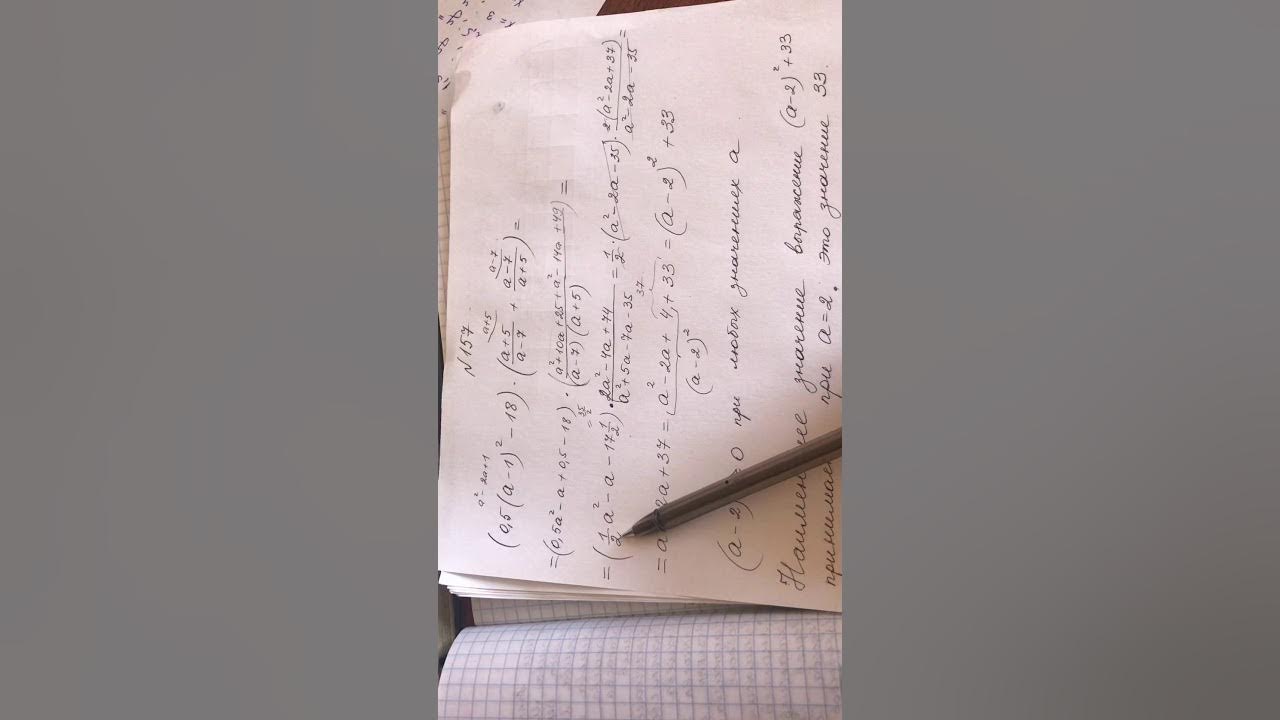 N 157.
a²-2a+1 a+5 a-7
(0,5(a-1)²-18)·((a+5)/(a-7) + (a-7)/(a+5)) =
=(0,5a²-a+0,5-18)·((a²+10a+25+a²-14a+49)/((a-7)(a+5))) =
=35/2
=(1/2a²-a-17 1/2)·(2a²-4a+74)/(a²+5a-7a-35) = 1/2·(a²-2a-35)·2(a²-2a+37)/(a²-2a-35) =
37
= a 2a+37 = a²-2a+4+33 = (a-2)²+33
(a-2)²
(a-2) 0 при любых значениях a
Наименьшее значение выражение (a-2)²+33
принимает при a=2. это значение 33.